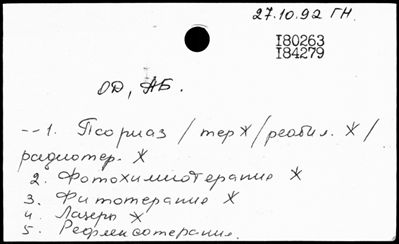 27.10.92 ГН.
I80263
I84279
ОД, АБ.
--1. Псориаз / тер Ж / реабил. Ж /
радиотер. Ж
2. Фотохимиотерапие Ж
3. Фитотерапие Ж
4. Лазеры Ж
5. Рефлексотерапия.